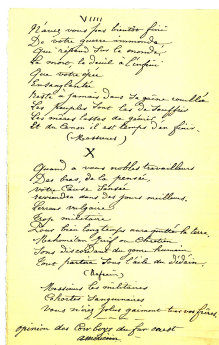 VIIII
N'avez vous pas bientôt fini
De votre guerre immonde
Qui répand sur le monde
La mort, le deuil à l'infini
Que votre épée
Ensanglantée
Reste à jamais dans sa gaine rouillée
Les peuples sont las de
Les mères lasses de gémir
Et du Canon il est temps d'en finir.
X
Quand à vous nobles travailleurs
Des bras, de la pensée,
votre Cause sensée
reviendra dans des jours meilleurs.
vulgaire
Trop militaire
Mahométan Juif ou Chrétien
Tous du genre humain
Tout sous l'aile du
(Refrain)
Messieurs les militaires
Cohortes Sanguinaires
Vous n'irez plus gaiement tuer vos frères.
opinion des Cow boys du far ouest
américain